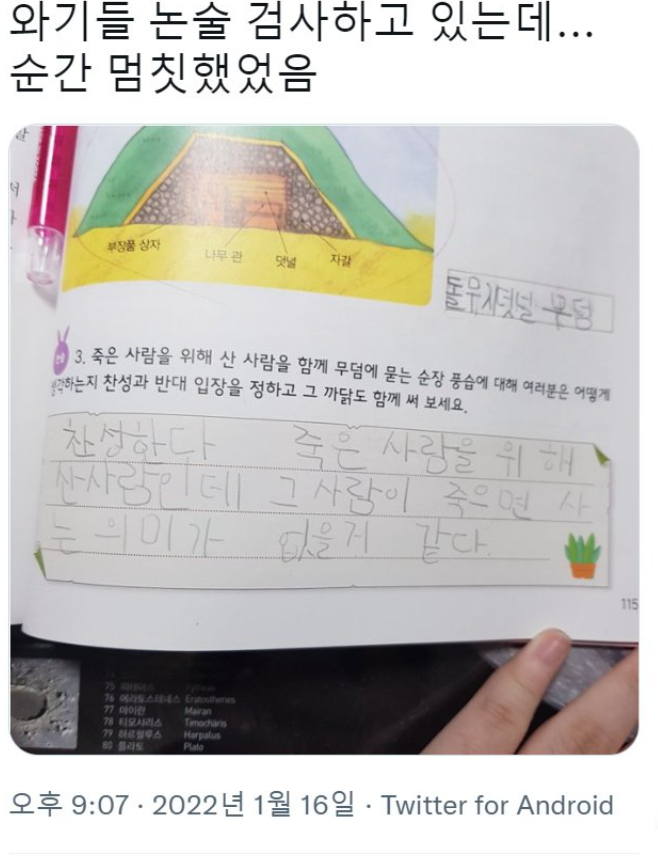 와기들 논술 검사하고 있는데...
순간 멈칫했었음
부장품 상자
나무 관
덧널
자갈
돌무지덧널 무덤
3. 죽은 사람을 위해 산 사람을 함께 무덤에 묻는 순장 풍습에 대해 여러분은 어떻게
생각하는지 찬성과 반대 입장을 정하고 그 까닭도 함께 써 보세요.
찬성하다 죽은 사람을 위해
산사람인데 그 사람이 죽으면 사
는 의미가 없을거 같다.
115
76 에라토스테네스 Eratosthenes
77 마이란 Mairan
78 티모사리스 Timocharis
79 하르팔루스 Harpalus
80 플라토 Plato
오후 9:07 · 2022년 1월 16일 · Twitter for Android